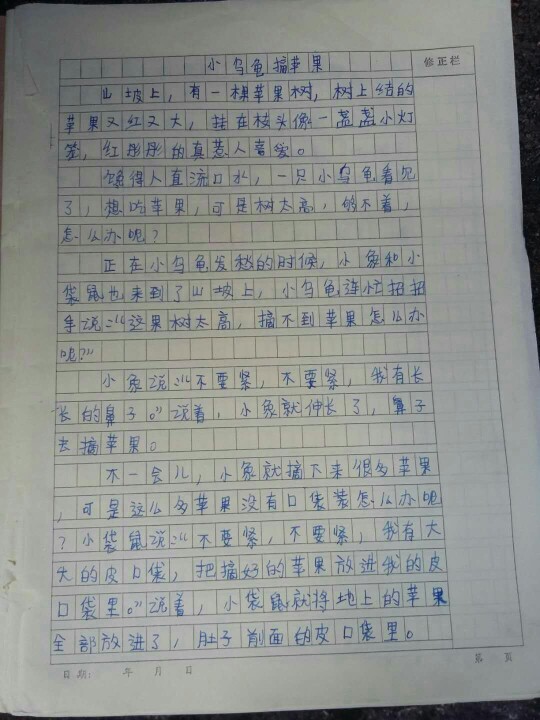 小乌龟摘苹果
修正栏
山坡上，有一棵苹果树，树上结的
苹果又红又大，挂在枝头像一盏盏小灯
笼，红彤彤的真惹人喜爱。
馋得人直流口水，一只小乌龟看见
了，想吃苹果，可是树太高，够不着，
怎么办呢？
正在小乌龟发愁的时候，小象和小
袋鼠也来到了山坡上，小乌龟连忙招招
手说：“这果树太高，摘不到苹果怎么办
呢？”
小象说：“不要紧，不要紧，我有长
长的鼻子。”说着，小象就伸长了，鼻子
去摘苹果。
不一会儿，小象就摘下来很多苹果
，可是这么多苹果没有口袋装怎么办呢
？小袋鼠说：“不要紧，不要紧，我有大
大的皮口袋，把摘好的苹果放进我的皮
口袋里。”说着，小袋鼠就将地上的苹果
全部放进了，肚子前面的皮口袋里。
日期： 年 月 日
第 页